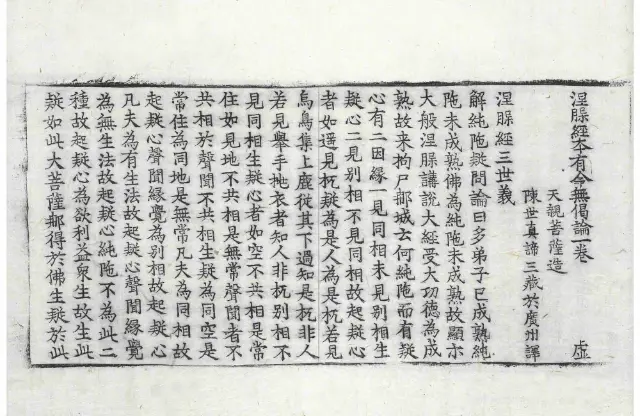 涅槃經本有今無偈論一卷 虛
天親菩薩造
陳世真諦三藏於廣州譯
涅槃經三世義
解純陁疑問論曰多弟子已成熟純
陁未成熟佛為純陁未成熟故顯示
大般涅槃講說大經受大功德為成
熟故来拘尸那城云何純陁而有疑
心有二因緣一見同相未見別相生
疑心二見別相不見同相故起疑心
者如遥見杌疑為是人為是杌若見
鳥鳥集上鹿從其下過知是杌非人
若見舉手挑衣者知人非杌別相不
見同相生疑心者如空不共相是常
住如見地不共相是無常聲聞者不
共相於聲聞不共相生疑為同空是
常住為同地是無常凡夫為同相故
起疑心聲聞緣覺為別相故起疑心
凡夫為有生法故起疑心聲聞緣覺
為無生法故起疑心純陁不為此二
種故起疑心為欲利益衆生故生此
疑如此大菩薩那得於佛生疑於此